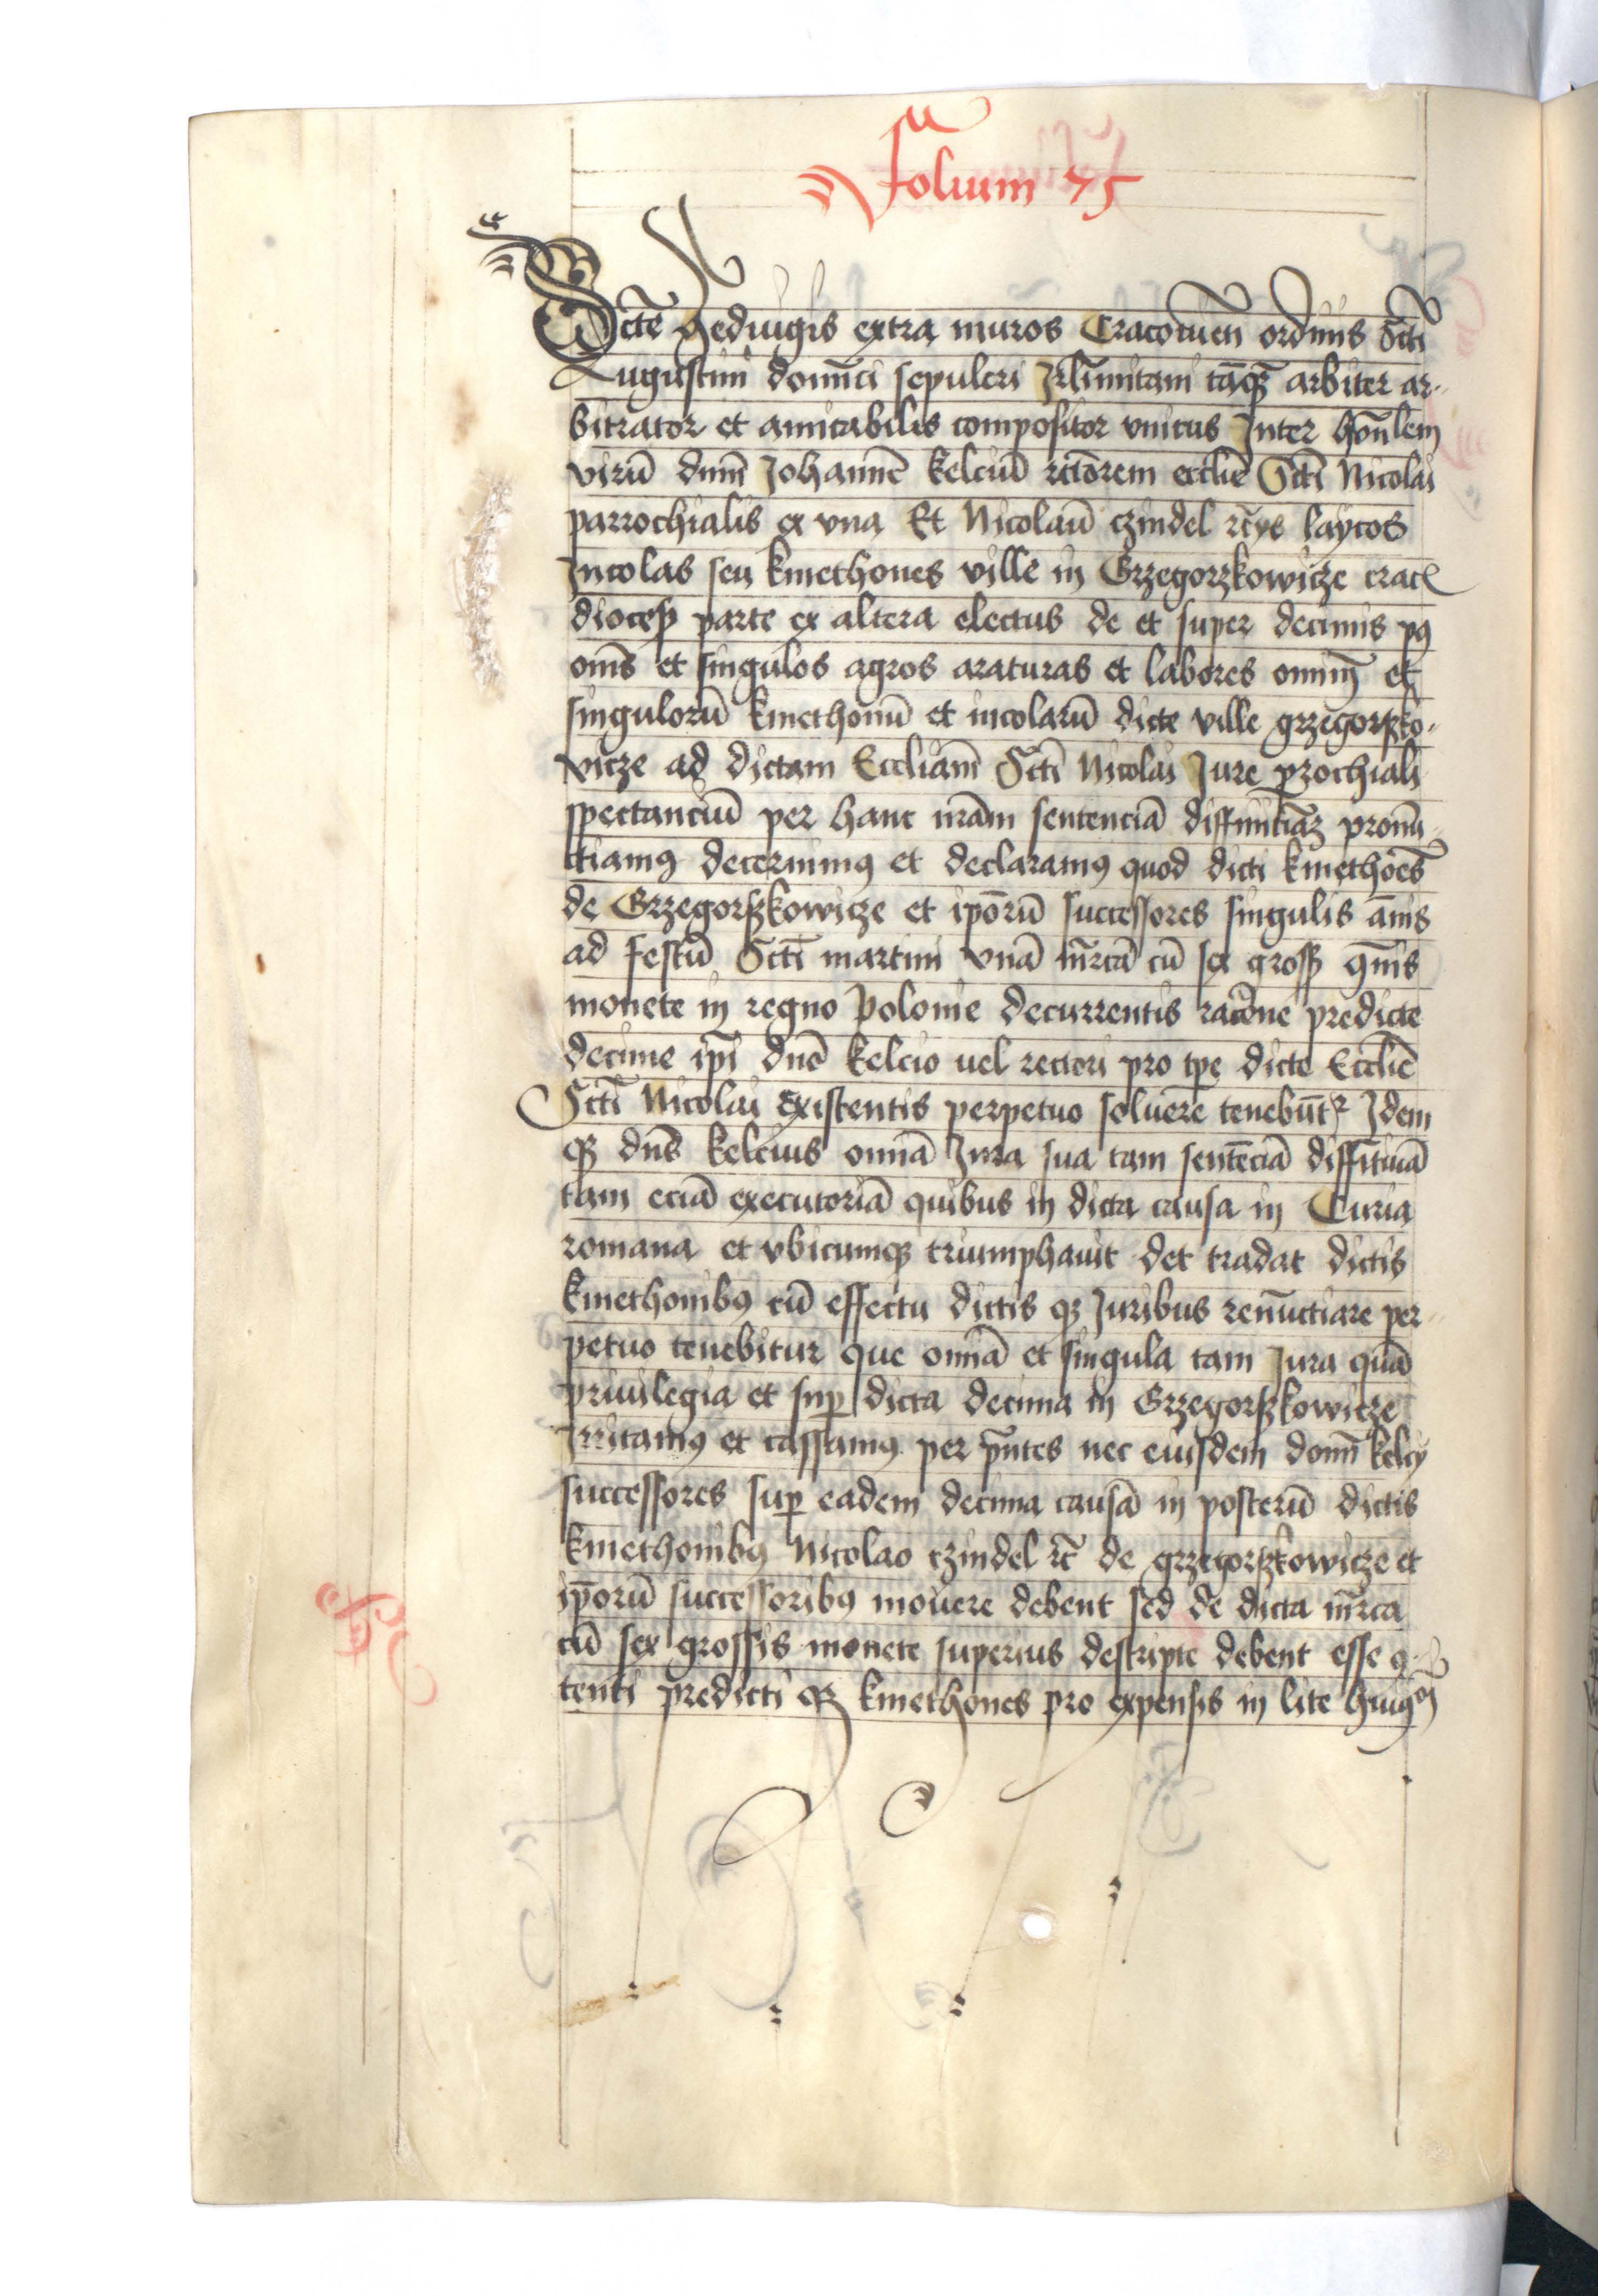 Folium 75
Sctē Hedwigis extra muros Cracouien̄ ordinis Scti
Augustini dominici sepulcri Jrlīmitani tāq̃ʒ arbiter ar-
bitrator et amicabilis compositor vnicus Inter hon̄lem
virū dnm̄ Johannē kelciū rctōrem eccliē Sctī Nicolai
parrochialis ex vna Et Nicolaū czindel rc̄ys laycos
Incolas seu kmethones ville in Grzegorzkowicze crac̄
dioceß parte ex altera electus de et super decimis pꝰ
om̄s et singulos agros araturas et labores omniū et
singulorū kmethonū et incolarū dicte ville grzegorßko-
vicze ad dictam Eccliam̄ Sctī Nicolai Jure prochiali
spectanciū per hanc nrām sentenciā diffinitiāʒ pronū-
ctiamꝰ decernimꝰ et declaramꝰ quod dicti kmethoēs
de Grzegorßkowicze et ipōrū successores singulis ānis
ad festū Sctī martini vnā mr̄cā cū sex groß ꝯmīs
monete in regno Polonie decurrentis racōne predicte
decime ipī dnō kelcio uel rectori pro tpe dicte Eccliē
Sctī Nicolai existentis perpetuo soluere tenebūtʳ Idem
qʒ dnūs kelcius omnā Jura sua tam sentēciā diffitiuā
tam eciā executoriā quibus in dicta causa in Curia
romana et vbicumqʒ triumphauit det tradat dictis
kmethonibꝰ cū effectu dictis qʒ Juribus renūctiare per-
petuo tenebitur que omnā et singula tam Jura quā
priuilegia et suꝑ dicta decima in Grzegorßkowicze
Irritamꝰ et cassamus per pn̄tes nec eiusdem domī kelcy
successores suꝑ eadem decima causā in posterū dictis
kmethonibꝰ Nicolao czindel rc̄ de grzegorßkowicze et
ipōrū successoribꝰ mouere debent sed de dicta mr̄ca
cū sex grossis monete superius descripte debent esse ꝯ-
tenti predicti qʒ kmethones pro expensis in lite huiꝰmōi